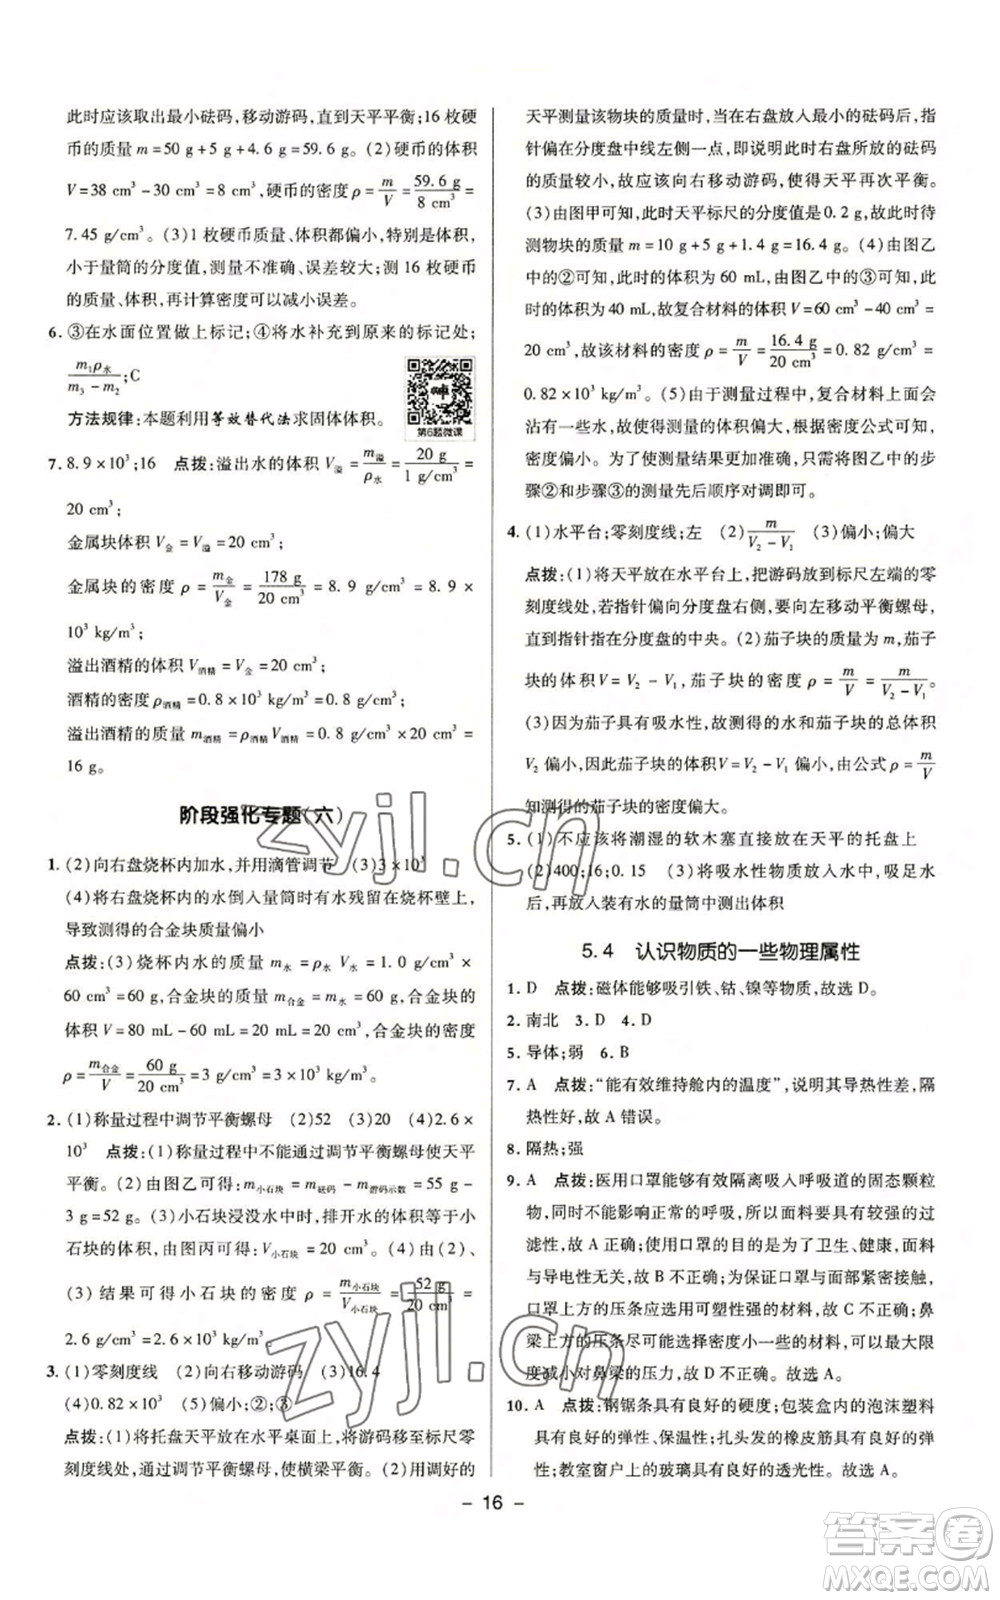 此时应该取出最小砝码,移动游码,直到天平平衡;16 枚硬
币的质量 m=50 g+5 g+4.6 g=59.6 g。(2)硬币的体积
V=38 cm³-30 cm³=8 cm³,硬币的密度 ρ=m/V=59.6 g/8 cm³=
7.45 g/cm³。(3)1 枚硬币质量、体积都偏小,特别是体积,
小于量筒的分度值,测量不准确、误差较大;测 16 枚硬币
的质量、体积,再计算密度可以减小误差。
6. ③在水面位置做上标记;④将水补充到原来的标记处;
m₁ρ水/(m₃-m₂);C
方法规律:本题利用等效替代法求固体体积。
第6题微课
7. 8.9×10³;16 点拨:溢出水的体积 V溢=m溢/ρ水=20 g/1 g/cm³=
20 cm³;
金属块体积 V金=V溢=20 cm³;
金属块的密度 ρ=m金/V金=178 g/20 cm³=8.9 g/cm³=8.9×
10³ kg/m³;
溢出酒精的体积 V酒精=V金=20 cm³;
酒精的密度 ρ酒精=0.8×10³ kg/m³=0.8 g/cm³;
溢出酒精的质量 m酒精=ρ酒精V酒精=0.8 g/cm³×20 cm³=
16 g。
阶段强化专题(六)
1. (2)向右盘烧杯内加水,并用滴管调节 (3)3×10³
(4)将右盘烧杯内的水倒入量筒时有水残留在烧杯壁上,
导致测得的合金块质量偏小
点拨:(3)烧杯内水的质量 m水=ρ水V水=1.0 g/cm³×
60 cm³=60 g,合金块的质量 m合金=m水=60 g,合金块的
体积 V=80 mL-60 mL=20 mL=20 cm³,合金块的密度
ρ=m合金/V=60 g/20 cm³=3 g/cm³=3×10³ kg/m³。
2. (1)称量过程中调节平衡螺母 (2)52 (3)20 (4)2.6×
10³ 点拨:(1)称量过程中不能通过调节平衡螺母使天平
平衡。(2)由图乙可得:m小石块=m砝码-m游码示数=55 g-
3 g=52 g。(3)小石块浸没水中时,排开水的体积等于小
石块的体积,由图丙可得:V小石块=20 cm³。(4)由(2)、
(3)可得小石块的密度:ρ=m小石块/V小石块=52 g/20 cm³=
2.6 g/cm³=2.6×10³ kg/m³。
3. (1)零刻度线 (2)向右移动游码 (3)16.4
(4)0.82×10³ (5)偏小;②;③
点拨:(1)将托盘天平放在水平桌面上,将游码移到标尺的
零刻度线处,调节平衡螺母,使横梁平衡。(2)用调节好的
天平测量该物块的质量时,当在右盘放入最小的砝码后,指
针偏在分度盘中线左侧一点,即说明右盘所放的砝码的
质量较小,故应该向右移动游码,使得天平再次平衡。
(3)由图甲可知,此时天平标尺的分度值是 0.2 g,故此时待
测物块的质量 m=10 g+5 g+1.4 g=16.4 g。(4)由图乙
中的②可知,此时的体积为 60 mL,由图乙中的③可知,此
时的体积为 40 mL,故复合材料的体积 V=60 cm³-40 cm³=
20 cm³,故该材料的密度 ρ=m/V=16.4 g/20 cm³=0.82 g/cm³=
0.82×10³ kg/m³。(5)在测量过程中,复合材料上面会
沾有一些水,故使得测量的体积偏大,根据密度公式可知,
密度偏小。为了使测量结果更加准确,只需将图乙中的步
骤②和步骤③的测量先后顺序对调即可。
4. (1)水平台;零刻度线;左 (2)m/(V₂-V₁) (3)偏小;偏大
点拨:(1)将天平放在水平台上,把游码放到标尺左端的零
刻度线处,若指针偏向分度盘右侧,要向左移动平衡螺母,
直到指针指在分度盘的中央。(2)茄子块的质量为 m,茄子
块的体积 V=V₂-V₁,茄子块的密度 ρ=m/V=m/(V₂-V₁)。
(3)因为茄子具有吸水性,故测得的水和茄子块的总体积
V₂ 偏小,因此茄子块的体积 V=V₂-V₁ 偏小,由公式 ρ=m/V
知测得的茄子块的密度偏大。
5. (1)不应该将潮湿的软木塞直接放在天平的托盘上
(2)400;16;0.15 (3)将吸水性物质放入水中,吸足水
后,再放入装有水的量筒中测出体积
5.4 认识物质的一些物理属性
1. D 点拨:磁体能够吸引铁、钴、镍等物质,故选 D。
2. 南北 3. D 4. D
5. 导体;弱 6. B
7. A 点拨:“能有效维持舱内的温度”,说明其导热性差,隔
热性好,故 A 错误。
8. 隔热;强
9. A 点拨:医用口罩能够有效隔离吸入呼吸道的固态颗粒
物,同时不能影响正常的呼吸,所以材料具有较强的过
滤性,故 A 正确;使用口罩的目的是为了卫生、健康,面料
与导电性无关,故 B 不正确;为保证口罩与面部紧密接触,
口罩上方的压条应选用可塑性强的材料,故 C 不正确;鼻
梁上方的压条尽可能选择密度小一些的材料,可以尽量
减小对鼻梁的压力,故 D 不正确。故选 A。
10. A 点拨:钢锯条具有良好的硬度;包装盒内的泡沫塑料
具有良好的弹性、保温性;扎头发的橡皮筋具有良好的弹
性;教室窗户上的玻璃具有良好的透光性。故选 A。
- 16 -
zyjl.cn
zyjl.cn
答案圈
MXQE.COM